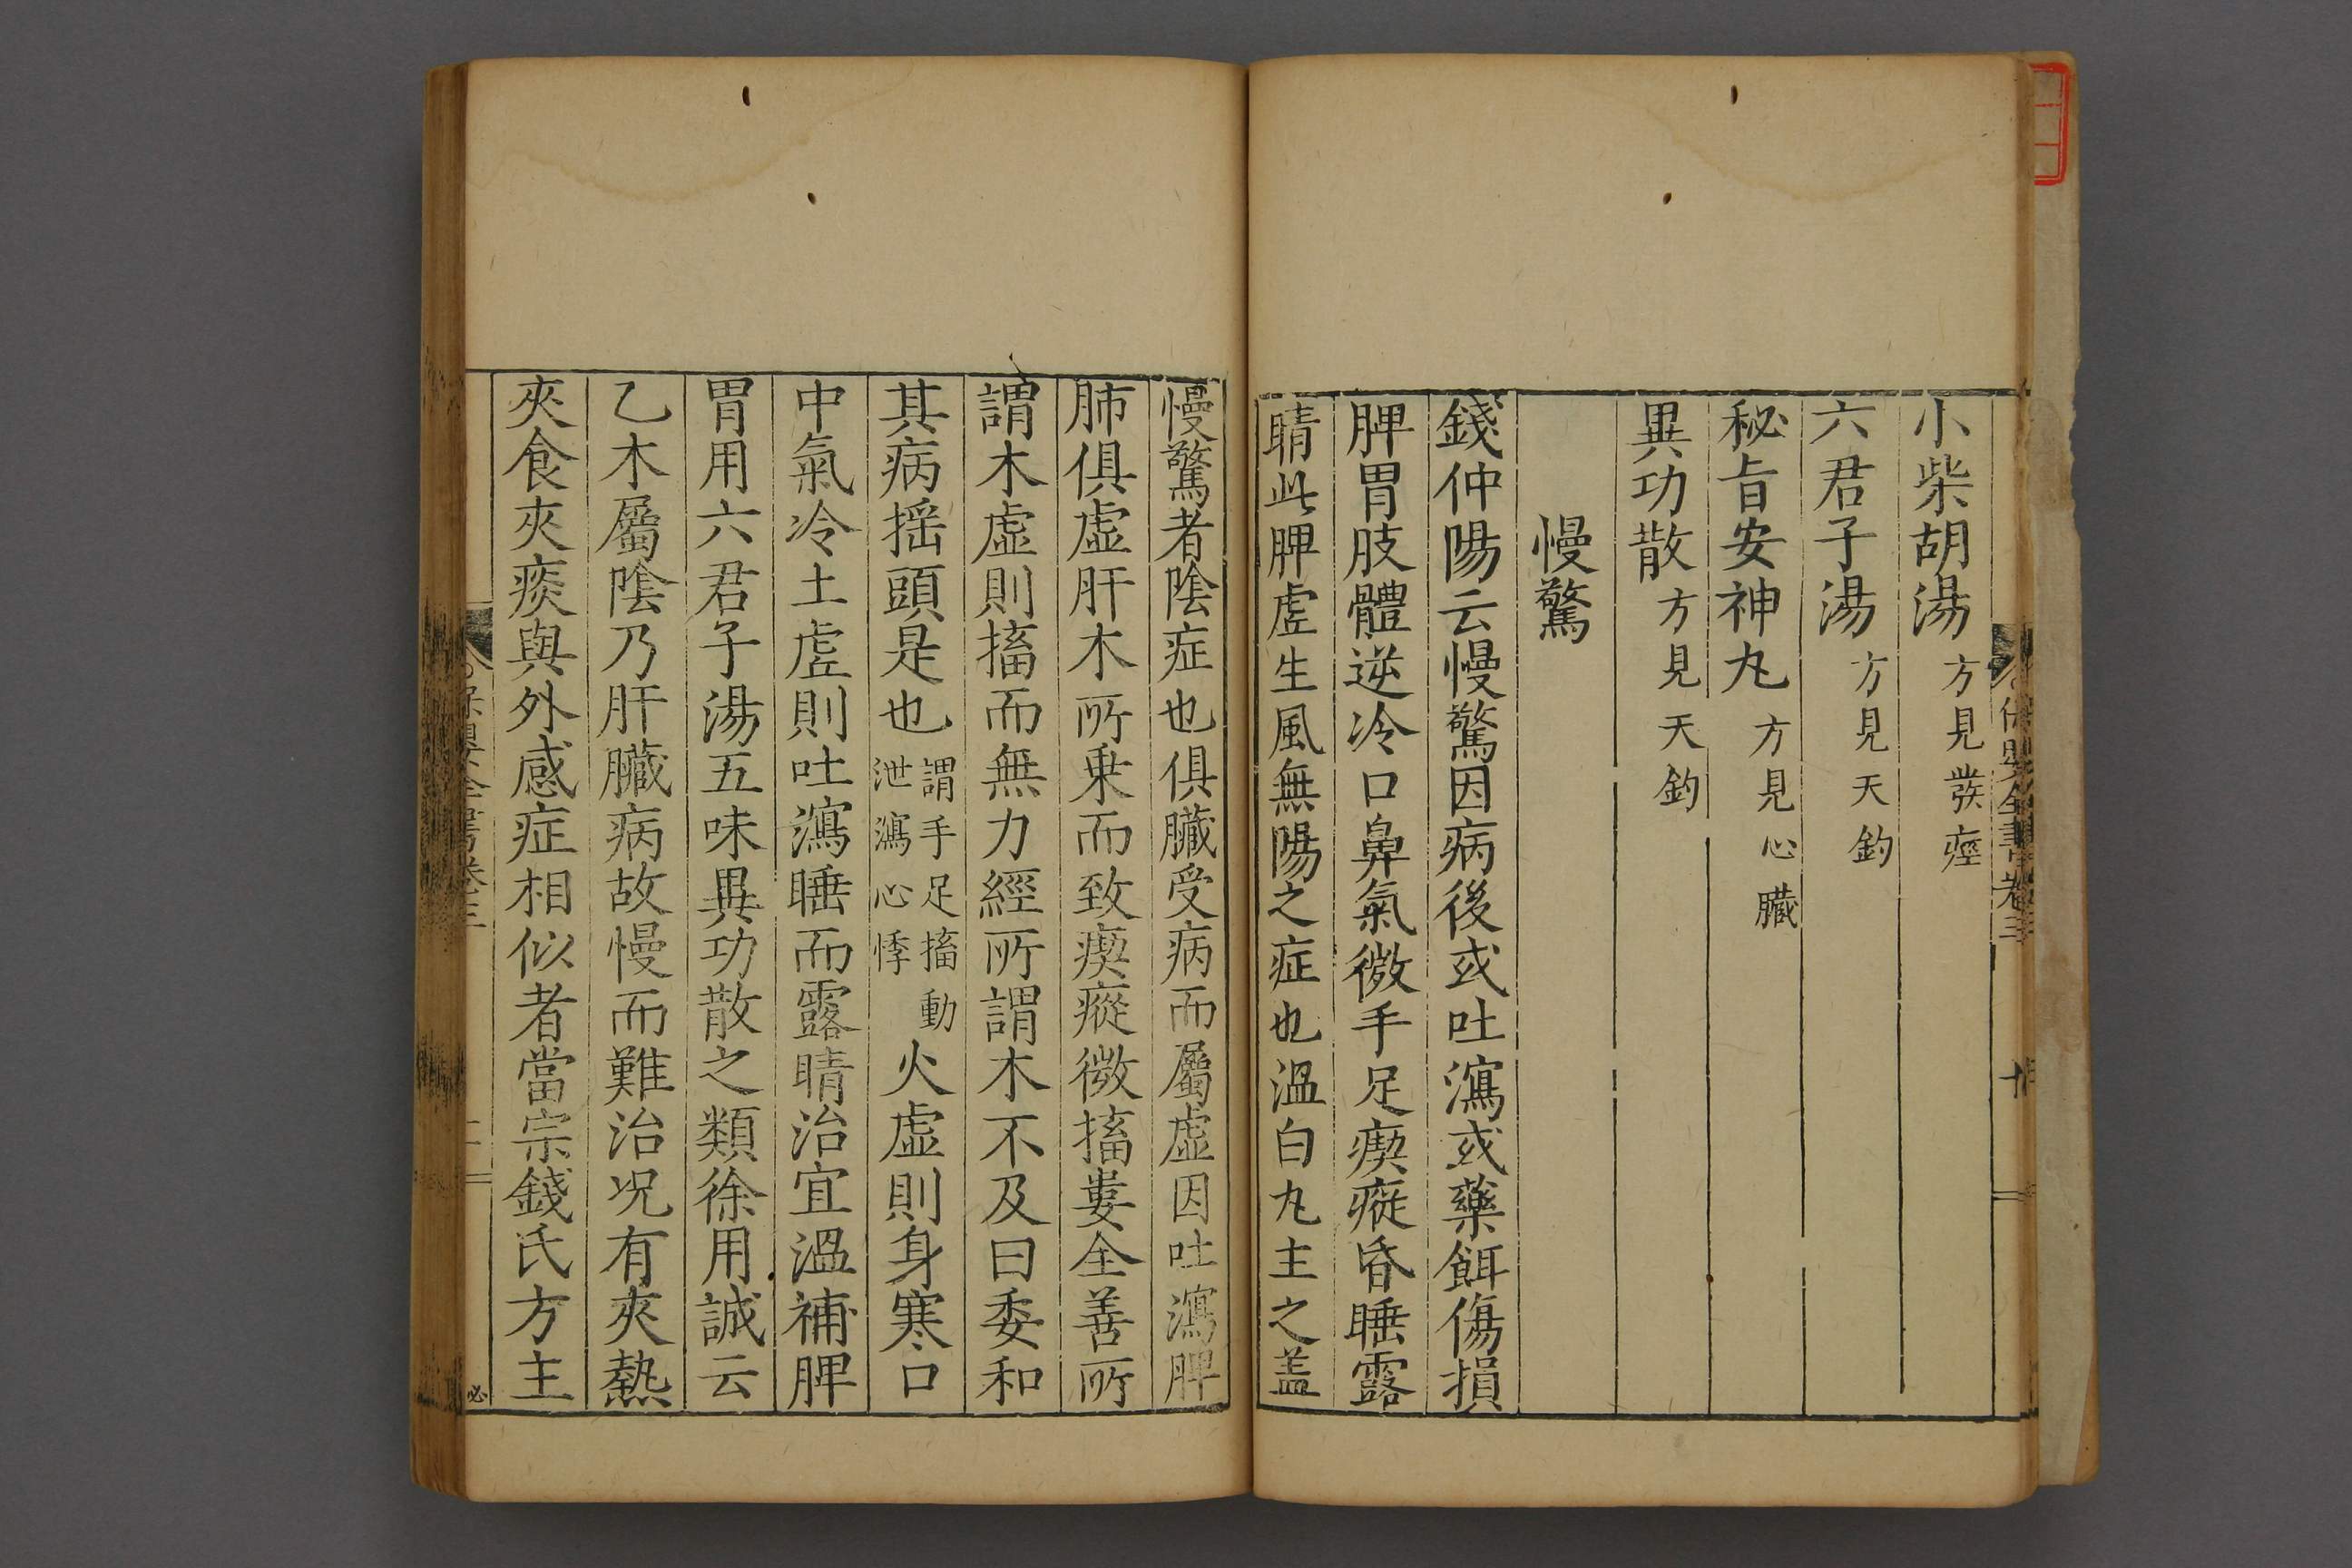 小柴胡湯方見發痙
六君子湯方見天釣
秘旨安神丸方見心臟
異功散方見天釣
慢驚
錢仲陽云慢驚因病後或吐瀉或藥餌傷損
脾胃肢體逆冷口鼻氣微手足瘈瘲昏睡露
睛此脾虛生風無陽之症也溫白丸主之盖
慢驚者陰症也俱臟受病而屬虛因吐瀉脾
肺俱虛肝木所乗而致瘈瘲微搐婁全善所
謂木虛則搐而無力經所謂木不及曰委和
其病揺頭是也謂手足搐動泄瀉心悸火虛則身寒口
中氣冷土虛則吐瀉睡而露睛治宜溫補脾
胃用六君子湯五味異功散之類徐用誠云
乙木屬陰乃肝臟病故慢而難治况有夾熱
夾食夾痰與外感症相似者當宗錢氏方主